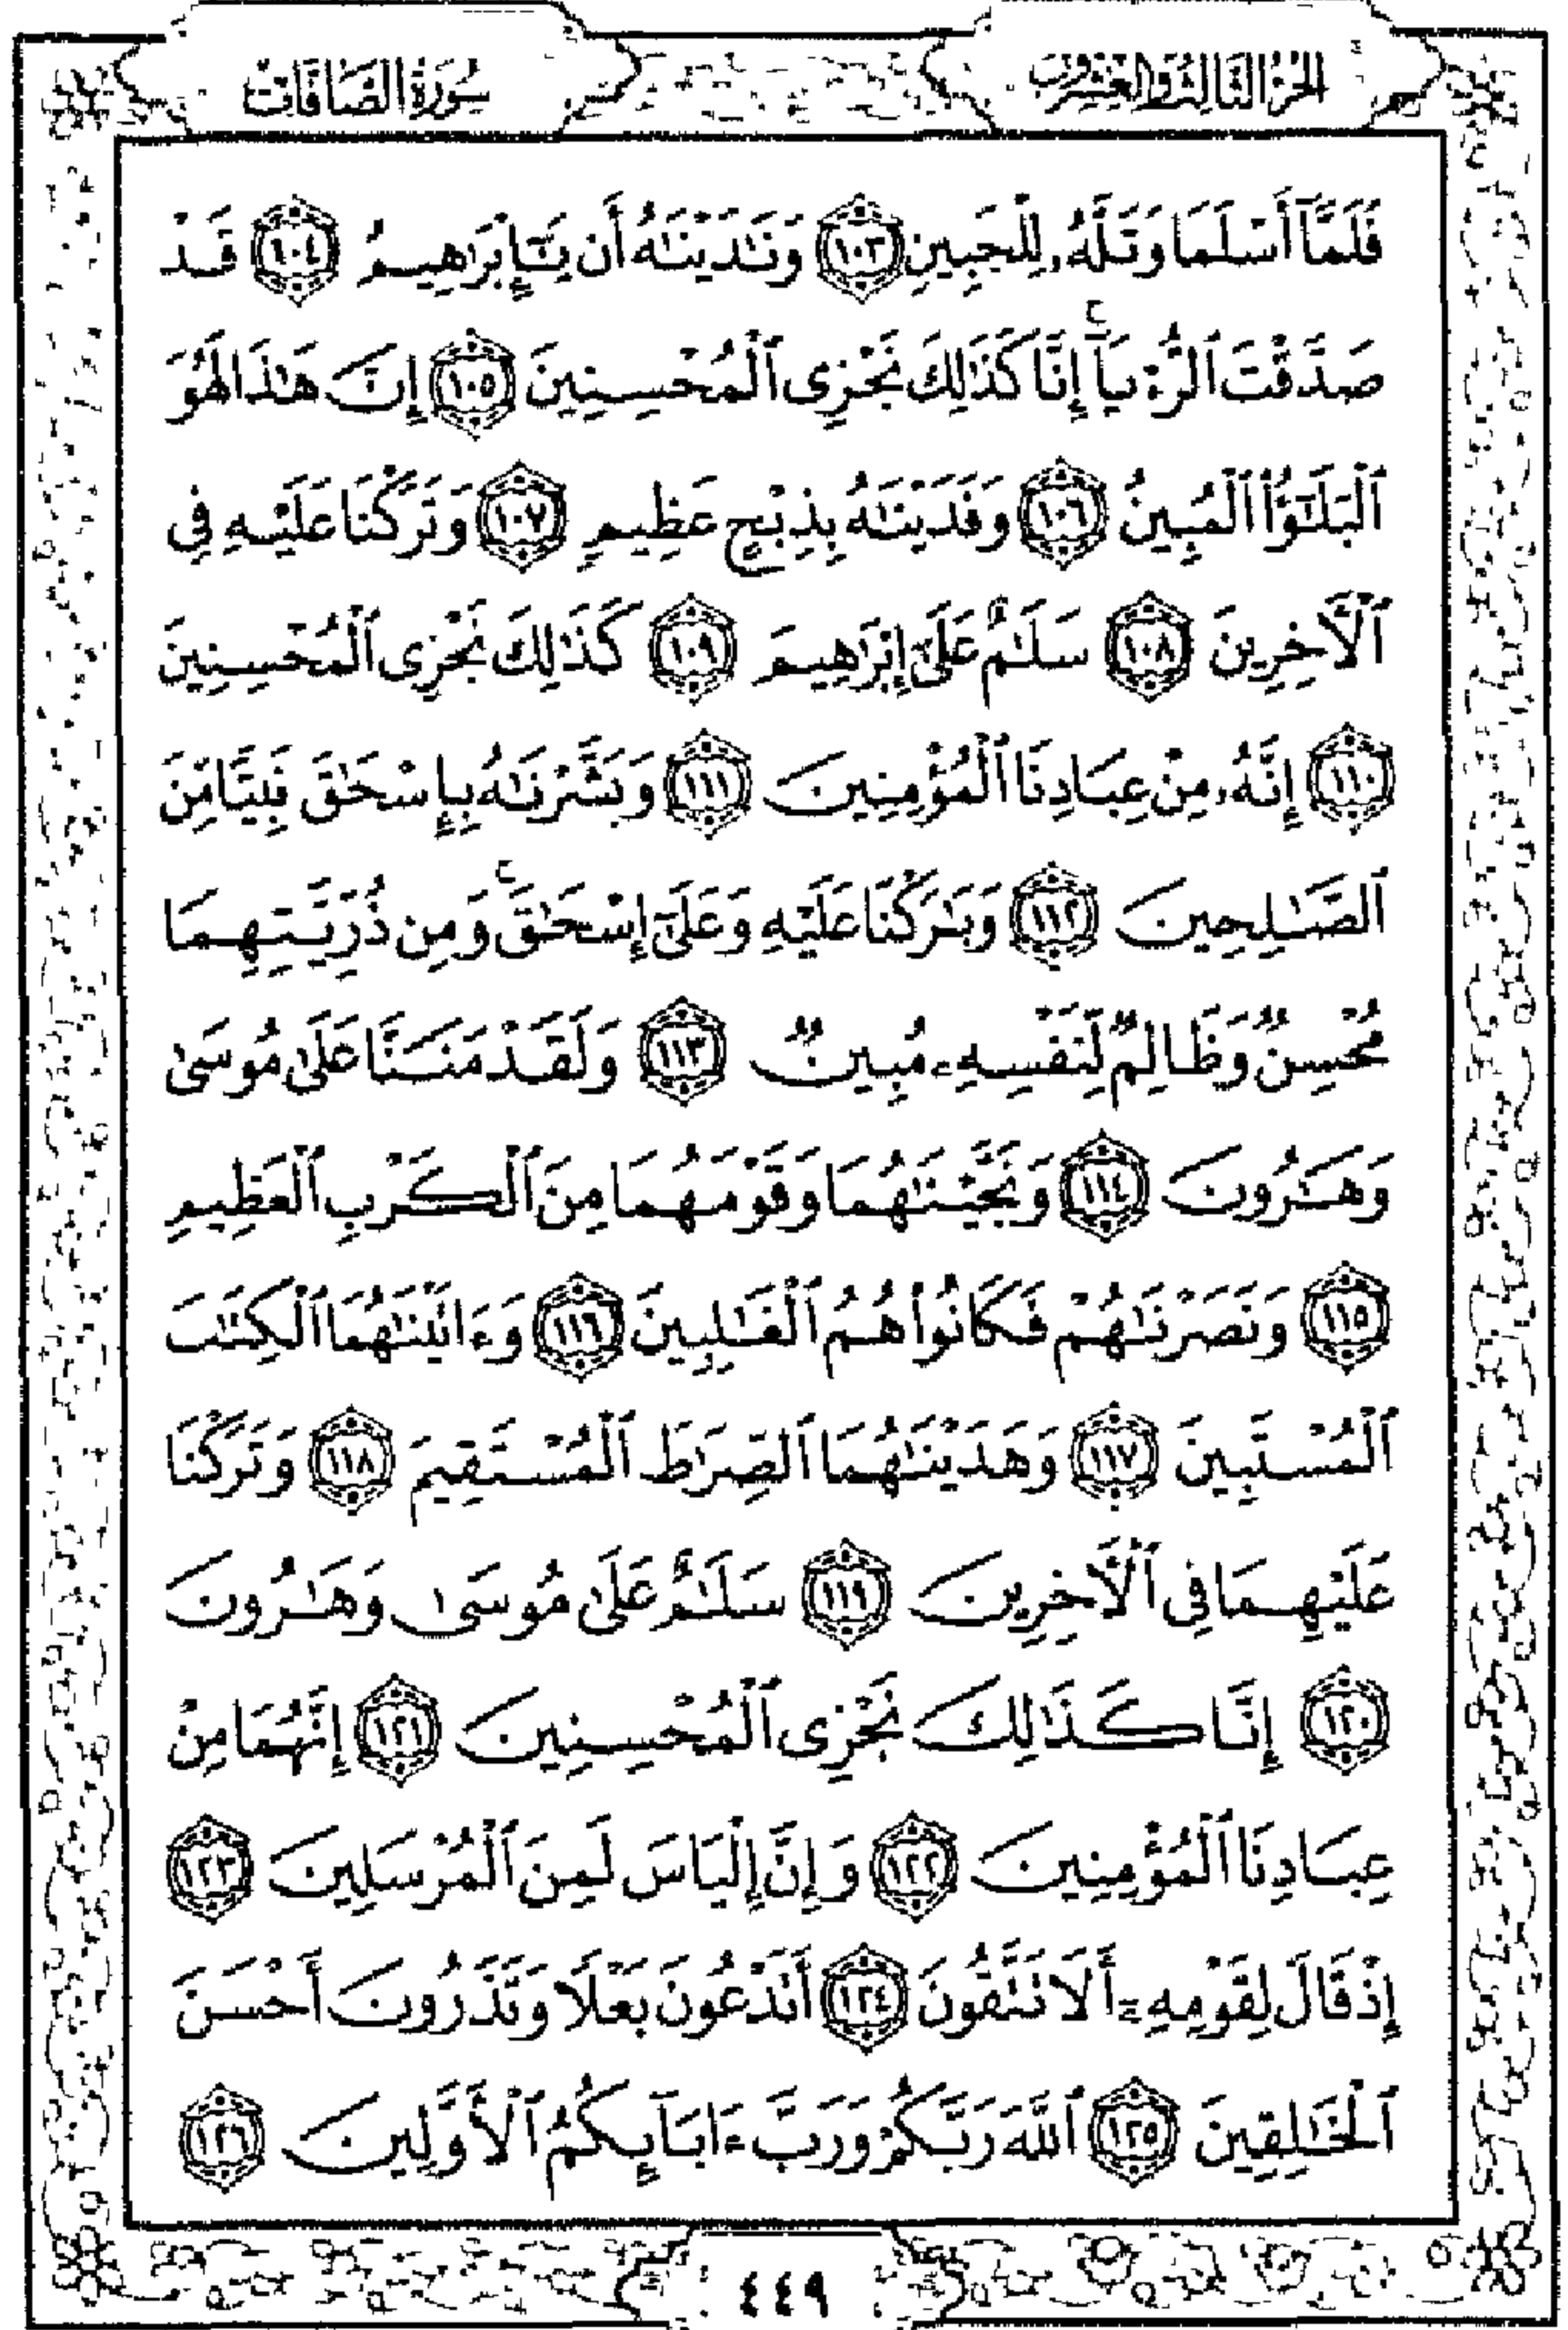 الجزء الثالث والعشرون
سورة الصافات
فَلَمَّآ أَسْلَمَا وَتَلَّهُۥ لِلْجَبِينِ ١٠٣ وَنَٰدَيْنَٰهُ أَن يَٰٓإِبْرَٰهِيمُ ١٠٤ قَدْ
صَدَّقْتَ ٱلرُّءْيَآ ۚ إِنَّا كَذَٰلِكَ نَجْزِى ٱلْمُحْسِنِينَ ١٠٥ إِنَّ هَٰذَا لَهُوَ
ٱلْبَلَٰٓؤُا۟ ٱلْمُبِينُ ١٠٦ وَفَدَيْنَٰهُ بِذِبْحٍ عَظِيمٍ ١٠٧ وَتَرَكْنَا عَلَيْهِ فِى
ٱلْءَاخِرِينَ ١٠٨ سَلَٰمٌ عَلَىٰٓ إِبْرَٰهِيمَ ١٠٩ كَذَٰلِكَ نَجْزِى ٱلْمُحْسِنِينَ
١١٠ إِنَّهُۥ مِنْ عِبَادِنَا ٱلْمُؤْمِنِينَ ١١١ وَبَشَّرْنَٰهُ بِإِسْحَٰقَ نَبِيًّا مِّنَ
ٱلصَّٰلِحِينَ ١١٢ وَبَٰرَكْنَا عَلَيْهِ وَعَلَىٰٓ إِسْحَٰقَ ۚ وَمِن ذُرِّيَّتِهِمَا
مُحْسِنٌ وَظَالِمٌ لِّنَفْسِهِۦ مُبِينٌ ١١٣ وَلَقَدْ مَنَنَّا عَلَىٰ مُوسَىٰ
وَهَٰرُونَ ١١٤ وَنَجَّيْنَٰهُمَا وَقَوْمَهُمَا مِنَ ٱلْكَرْبِ ٱلْعَظِيمِ
١١٥ وَنَصَرْنَٰهُمْ فَكَانُوا۟ هُمُ ٱلْغَٰلِبِينَ ١١٦ وَءَاتَيْنَٰهُمَا ٱلْكِتَٰبَ
ٱلْمُسْتَبِينَ ١١٧ وَهَدَيْنَٰهُمَا ٱلصِّرَٰطَ ٱلْمُسْتَقِيمَ ١١٨ وَتَرَكْنَا
عَلَيْهِمَا فِى ٱلْءَاخِرِينَ ١١٩ سَلَٰمٌ عَلَىٰ مُوسَىٰ وَهَٰرُونَ
١٢٠ إِنَّا كَذَٰلِكَ نَجْزِى ٱلْمُحْسِنِينَ ١٢١ إِنَّهُمَا مِنْ
عِبَادِنَا ٱلْمُؤْمِنِينَ ١٢٢ وَإِنَّ إِلْيَاسَ لَمِنَ ٱلْمُرْسَلِينَ ١٢٣
إِذْ قَالَ لِقَوْمِهِۦٓ أَلَا تَتَّقُونَ ١٢٤ أَتَدْعُونَ بَعْلًا وَتَذَرُونَ أَحْسَنَ
ٱلْخَٰلِقِينَ ١٢٥ ٱللَّهَ رَبَّكُمْ وَرَبَّ ءَابَآئِكُمُ ٱلْأَوَّلِينَ ١٢٦
٤٤٩